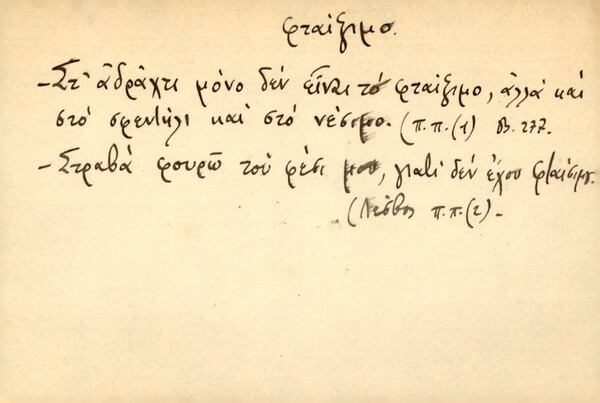 φταίξιμο.
- Στ' ἀδράχτι μόνο δέν εἶναι τό φταίξιμο, ἀλλά καί
στό σφεντύλι καί στό νέσιμο. (π.π.(1) Β. 277.
- Στραβά φουρῶ τού φέσι μου, γιατί δέν ἔχου φταίσιμυ.
(Λέσβος π.π.(2).-